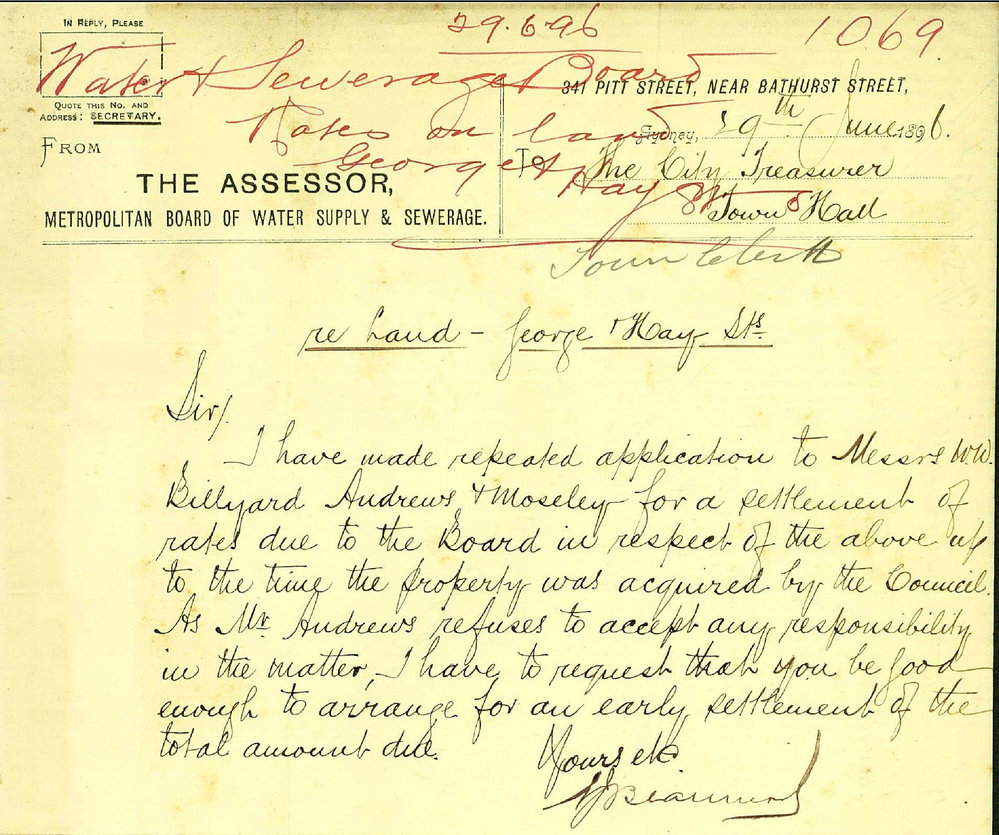 IN REPLY, PLEASE
QUOTE THIS NO. AND
ADDRESS: SECRETARY.
29.6.96
1069
Water & Sewerage Board
Rates on land
George & Hay Sts
341 PITT STREET, NEAR BATHURST STREET,
Sydney, 29th June 1896.
FROM
THE ASSESSOR,
METROPOLITAN BOARD OF WATER SUPPLY & SEWERAGE.
To The City Treasurer
Town Hall
Town Clerk
re Land - George & Hay Sts.
Sir/
I have made repeated application to Messrs WW.
Billyard Andrews & Moseley for a settlement of
rates due to the Board in respect of the above up
to the time the property was acquired by the Council.
As Mr. Andrews refuses to accept any responsibility
in the matter, I have to request that you be good
enough to arrange for an early settlement of the
total amount due.
Yours etc